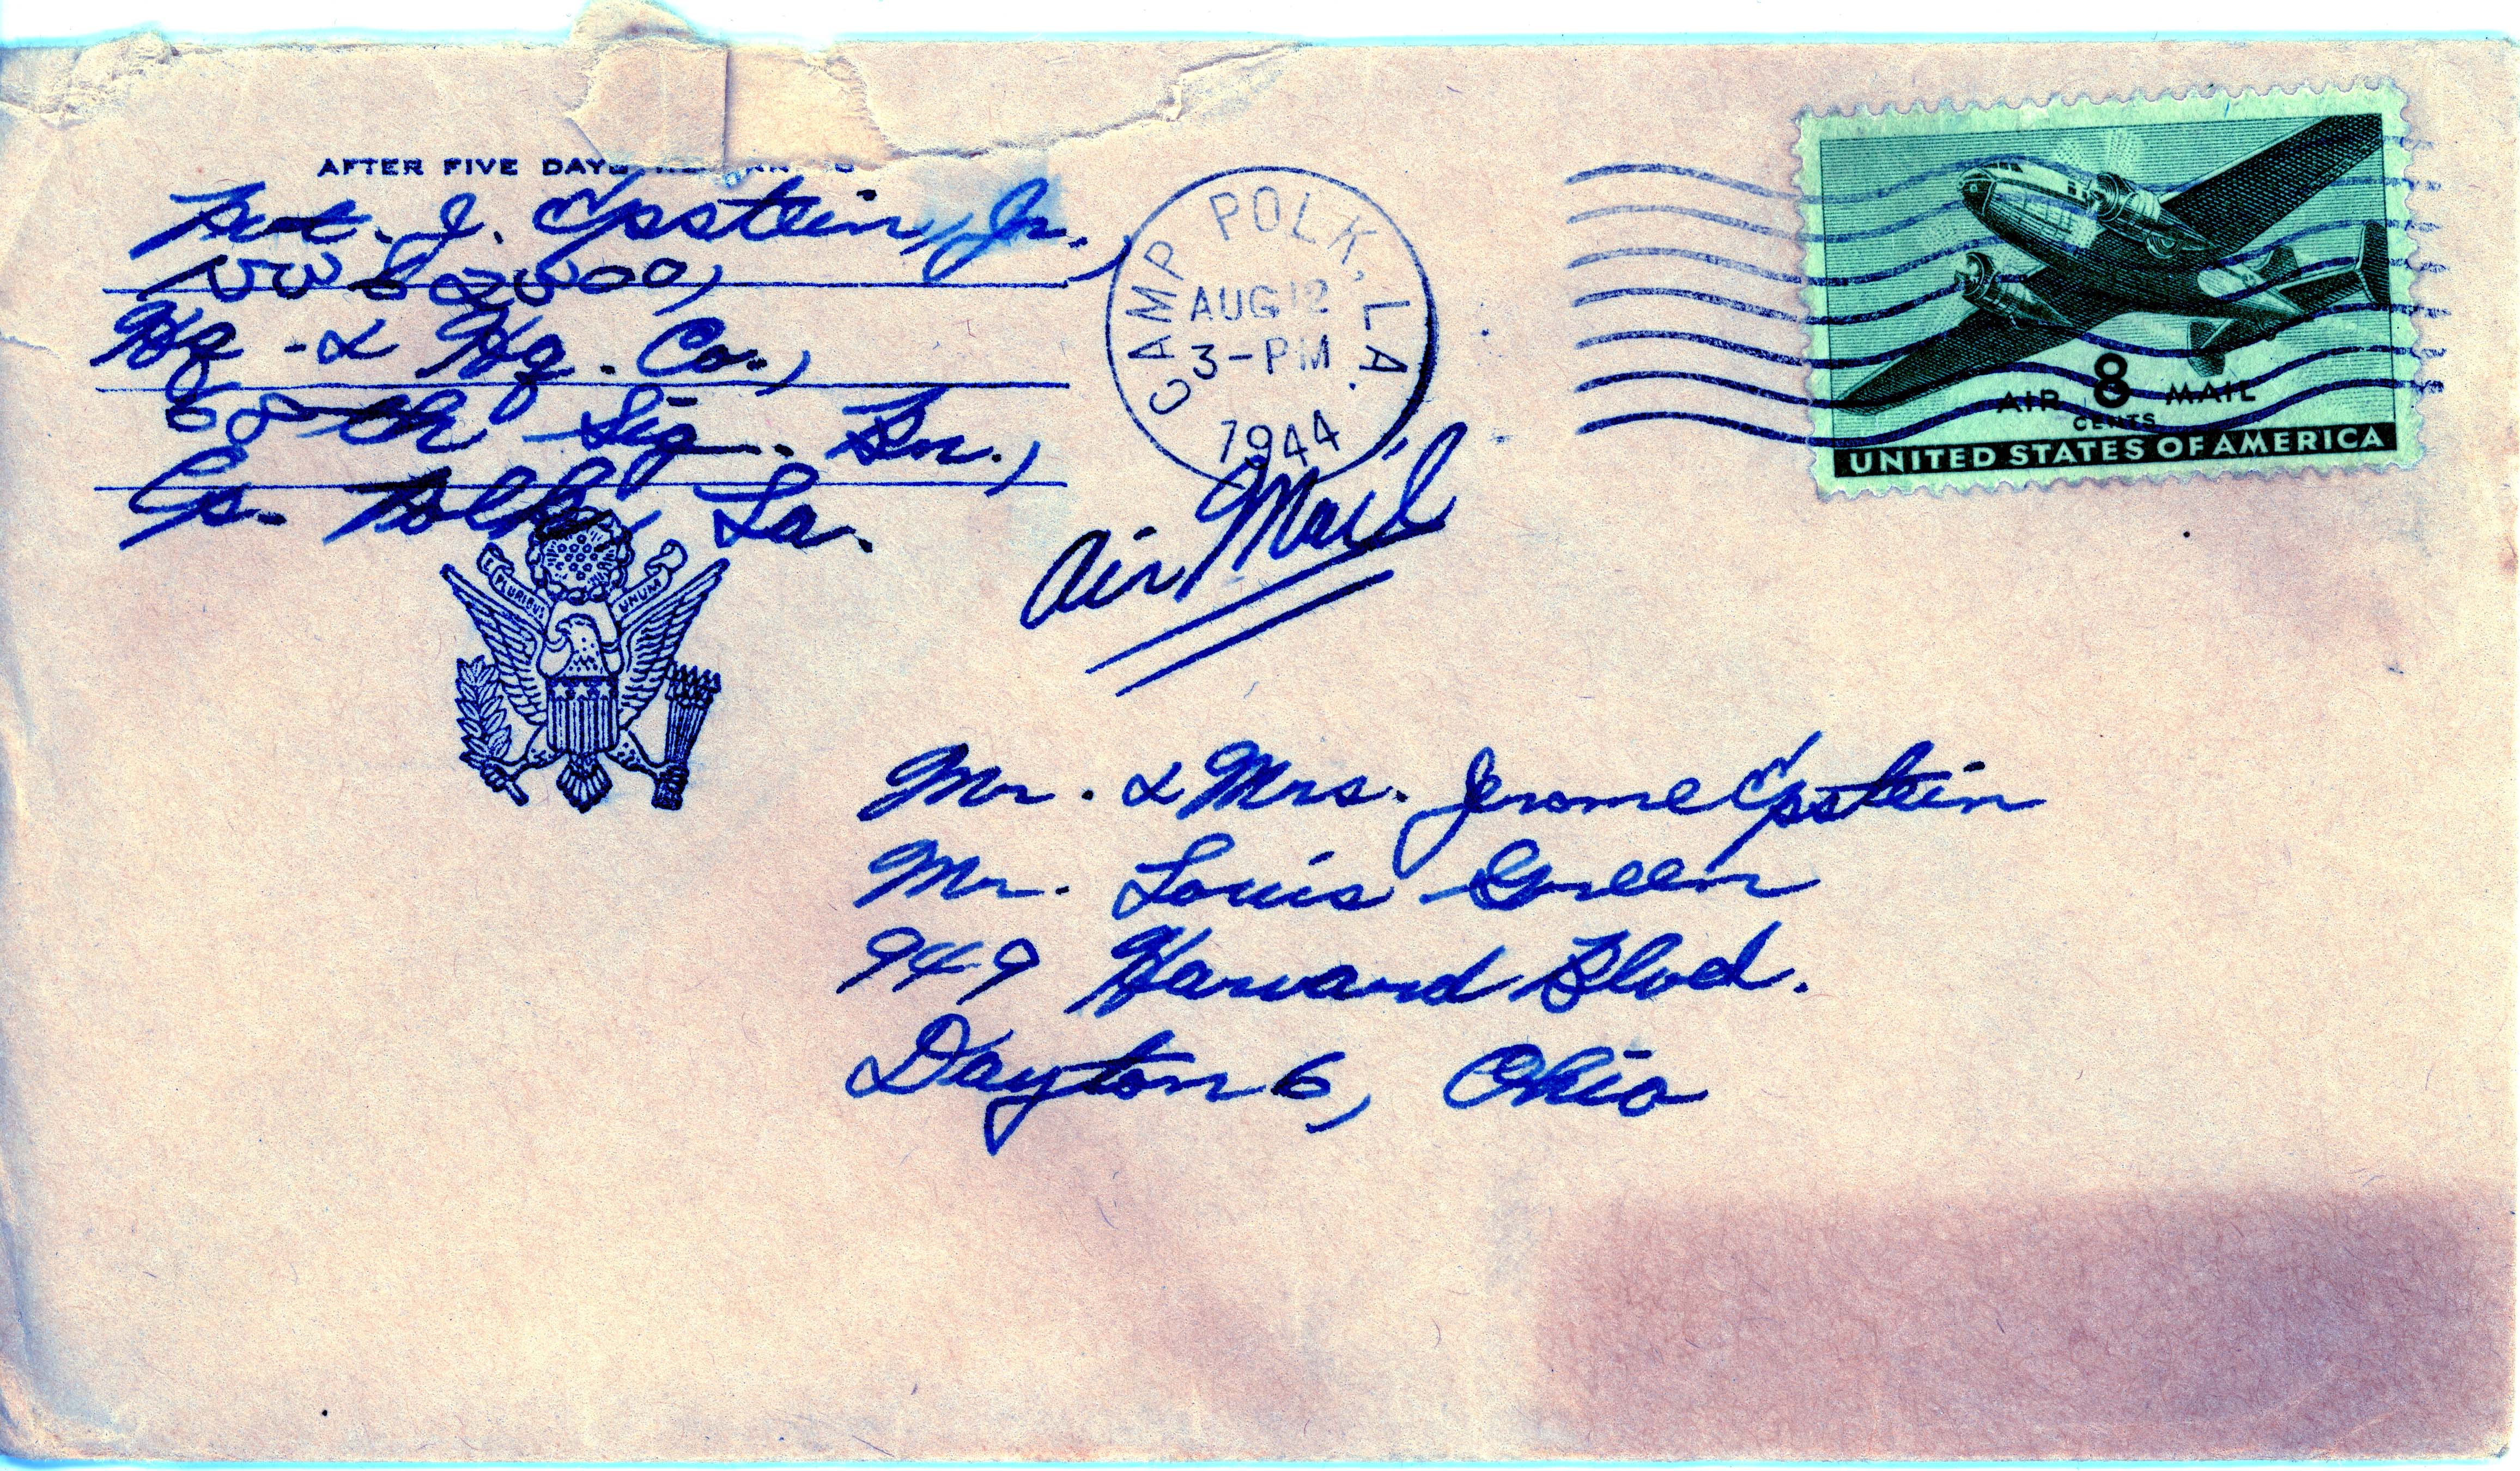 AFTER FIVE DAYS
Pvt. J. Epstein, Jr.,
Hq. & Hq. Co.,
68th Sig. Bn.,
Cp. Polk, La.
CAMP POLK, LA.
AUG 12
3-PM
1944
Air Mail
AIR 8 MAIL
CENTS
UNITED STATES OF AMERICA
PLURIBUS UNUM
Mr. & Mrs. Jerome Epstein
Mr. Louis Green
949 Harvard Blvd.
Dayton 6, Ohio